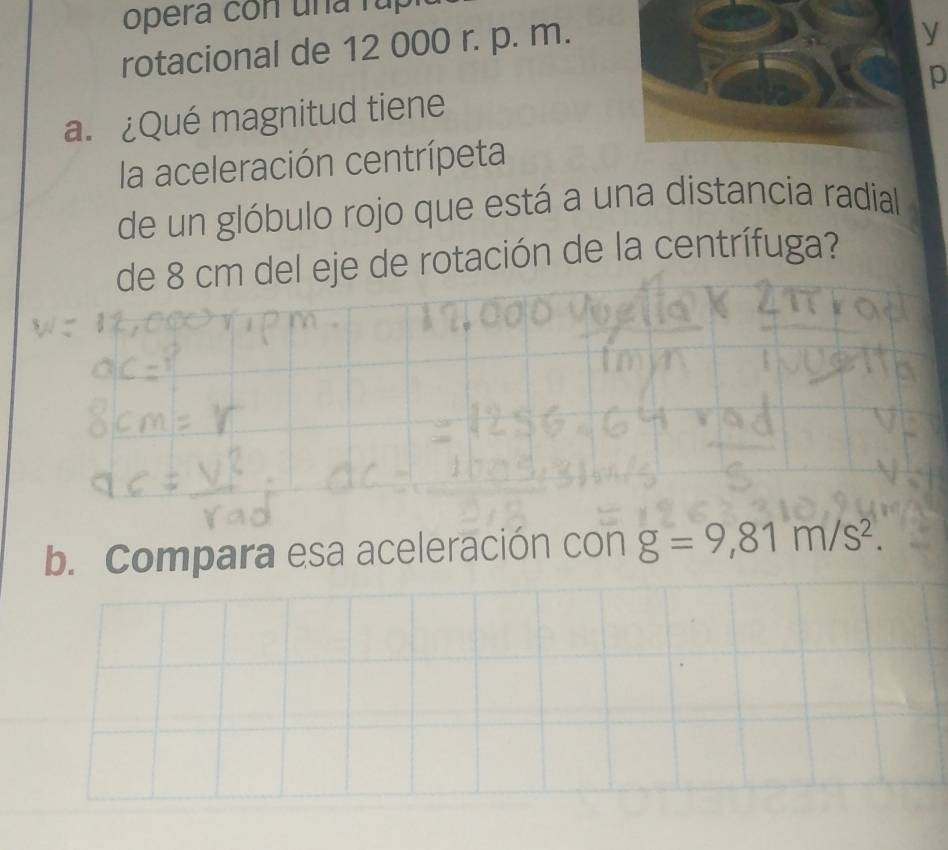 opera con una
rotacional de 12 000 r. p. m.
y
p
a. ¿Qué magnitud tiene
la aceleración centrípeta
de un glóbulo rojo que está a una distancia radial
de 8 cm del eje de rotación de la centrífuga?
w = 12,000 r.pm. 12,000 vuelta x 2π rad
ac = ? 1min 1 vuelta
8cm = r = 1256.64 rad V=
ac = V² ac = s
rad
b. Compara esa aceleración con g = 9,81 m/s².